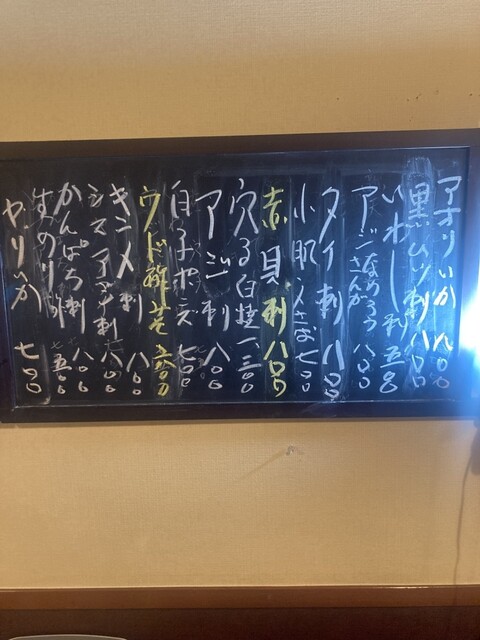 アオリいか 八〇〇
黒ムツ刺 八〇〇
いわし刺 五五〇
アジなめろう さんが 八〇〇
タイ刺 八〇〇
小肌 〆さば 七〇〇
赤貝刺 八〇〇
穴子白焼 一、三〇〇
アジ刺 八〇〇
白子ポン酢 七〇〇
ウド酢みそ 六〇〇
キンメ刺 八〇〇
シマアジ刺 八〇〇
かんぱち刺 八〇〇
はまのり 五〇〇
ヤリいか 七〇〇